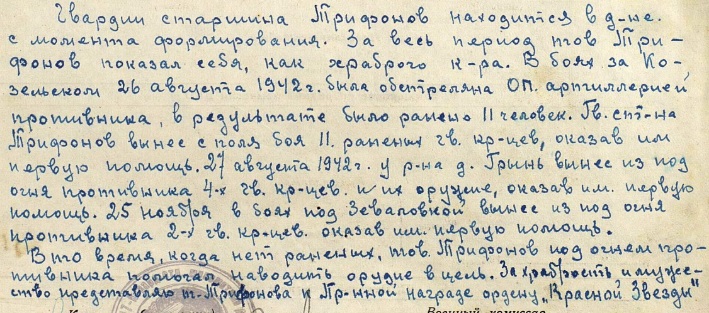 Гвардии старшина Трифонов находится в д-не.
с момента формирования. За весь период тов Три-
фонов показал себя, как храброго к-ра. В боях за Ко-
зельском 26 августа 1942 г. была обстреляна ОП. артиллерией
противника, в результате было ранено 11 человек. Гв. ст-на
Трифонов вынес с поля боя 11. раненых гв. кр-цев, оказав им
первую помощь. 27 августа 1942г. у р-на д. Грынь вынес из под
огня противника 4-х гв. кр-цев. и их оружие, оказав им. первую
помощь. 25 ноября в боях под Зеваловкой вынес из под огня
противника 2-х гв. кр-цев. оказав им. первую помощь.
В то время, когда нет раненых, тов. Трифонов под огнем про-
тивника помогал наводить орудие в цель. За храбрость и муже-
ство представляю т. Трифонова к Пр-нной награде ордену „Красной Звезды"
Военный комиссар